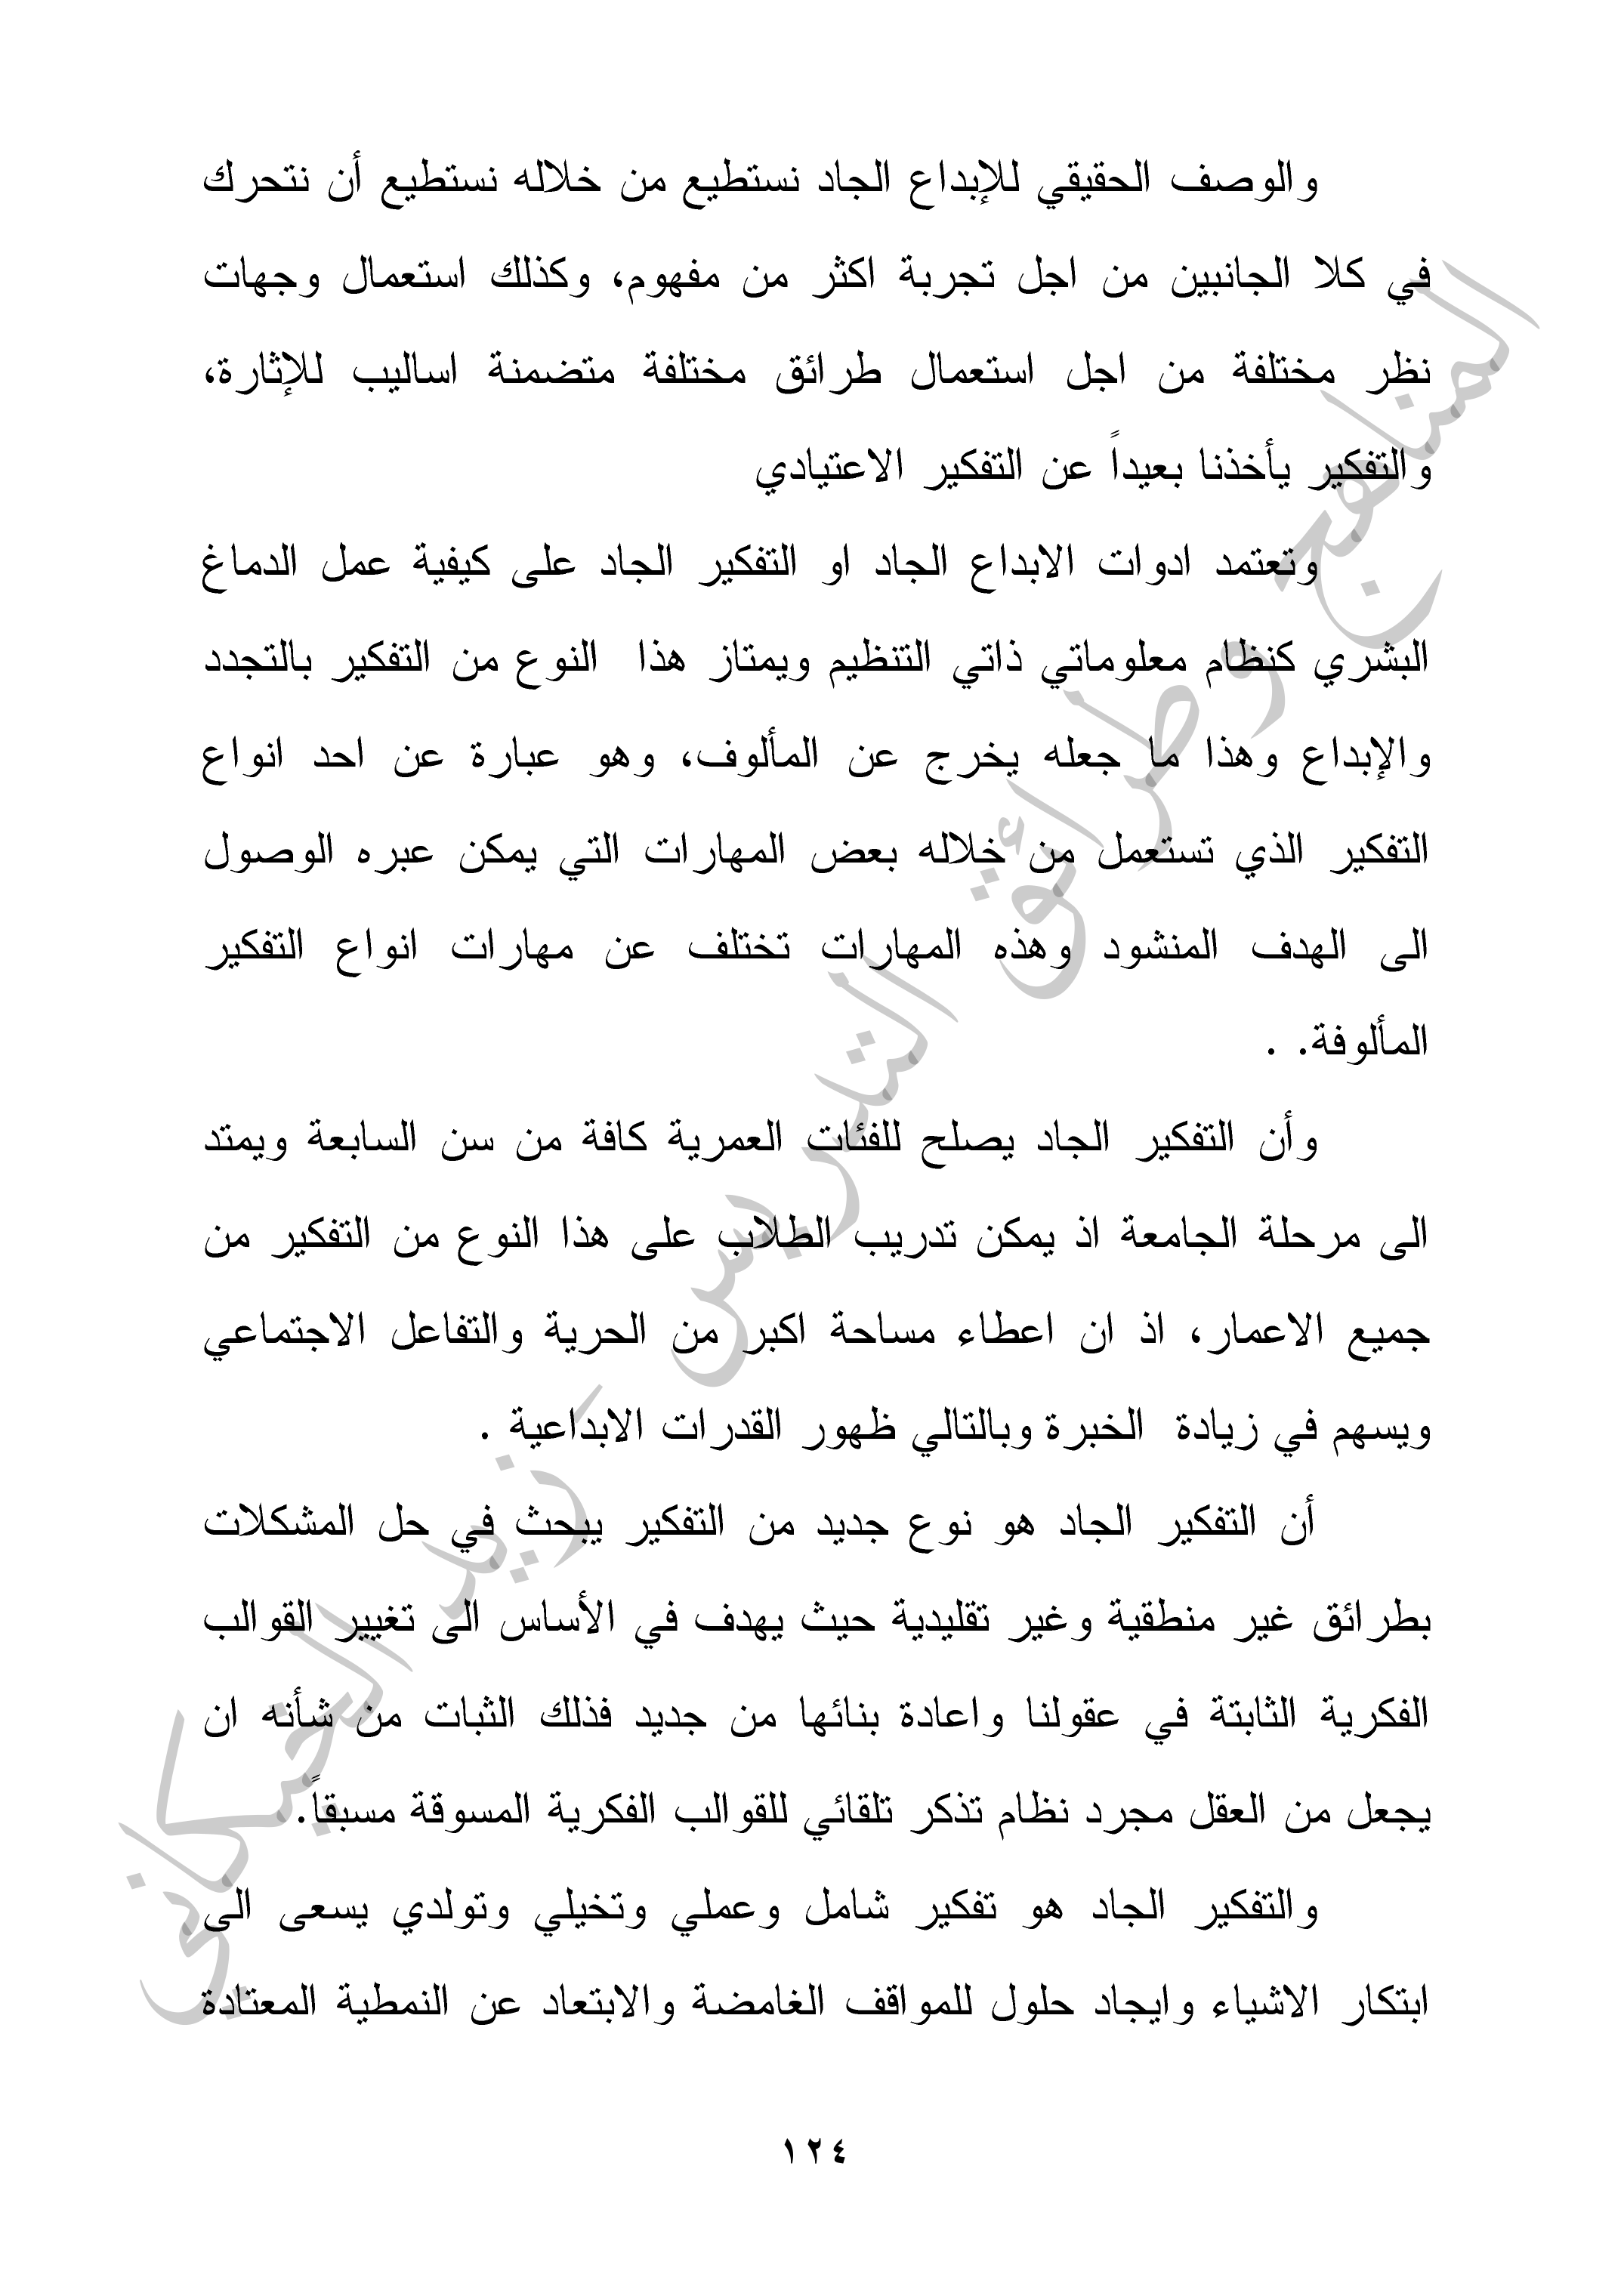 والوصف الحقيقي للإبداع الجاد نستطيع من خلاله نستطيع أن نتحرك
في كلا الجانبين من اجل تجربة اكثر من مفهوم، وكذلك استعمال وجهات
نظر مختلفة من اجل استعمال طرائق مختلفة متضمنة اساليب للإثارة،
والتفكير يأخذنا بعيداً عن التفكير الاعتيادي
وتعتمد ادوات الابداع الجاد او التفكير الجاد على كيفية عمل الدماغ
البشري كنظام معلوماتي ذاتي التنظيم ويمتاز هذا النوع من التفكير بالتجدد
والإبداع وهذا ما جعله يخرج عن المألوف، وهو عبارة عن احد انواع
التفكير الذي تستعمل من خلاله بعض المهارات التي يمكن عبره الوصول
الى الهدف المنشود وهذه المهارات تختلف عن مهارات انواع التفكير
المألوفة. .
وأن التفكير الجاد يصلح للفئات العمرية كافة من سن السابعة ويمتد
الى مرحلة الجامعة اذ يمكن تدريب الطلاب على هذا النوع من التفكير من
جميع الاعمار، اذ ان اعطاء مساحة اكبر من الحرية والتفاعل الاجتماعي
ويسهم في زيادة الخبرة وبالتالي ظهور القدرات الابداعية .
أن التفكير الجاد هو نوع جديد من التفكير يبحث في حل المشكلات
بطرائق غير منطقية وغير تقليدية حيث يهدف في الأساس الى تغيير القوالب
الفكرية الثابتة في عقولنا واعادة بنائها من جديد فذلك الثبات من شأنه ان
يجعل من العقل مجرد نظام تذكر تلقائي للقوالب الفكرية المسوقة مسبقاً.
والتفكير الجاد هو تفكير شامل وعملي وتخيلي وتولدي يسعى الى
ابتكار الاشياء وايجاد حلول للمواقف الغامضة والابتعاد عن النمطية المعتادة
١٢٤
المناهج وطرائق التدريس - زيد الخيكاني